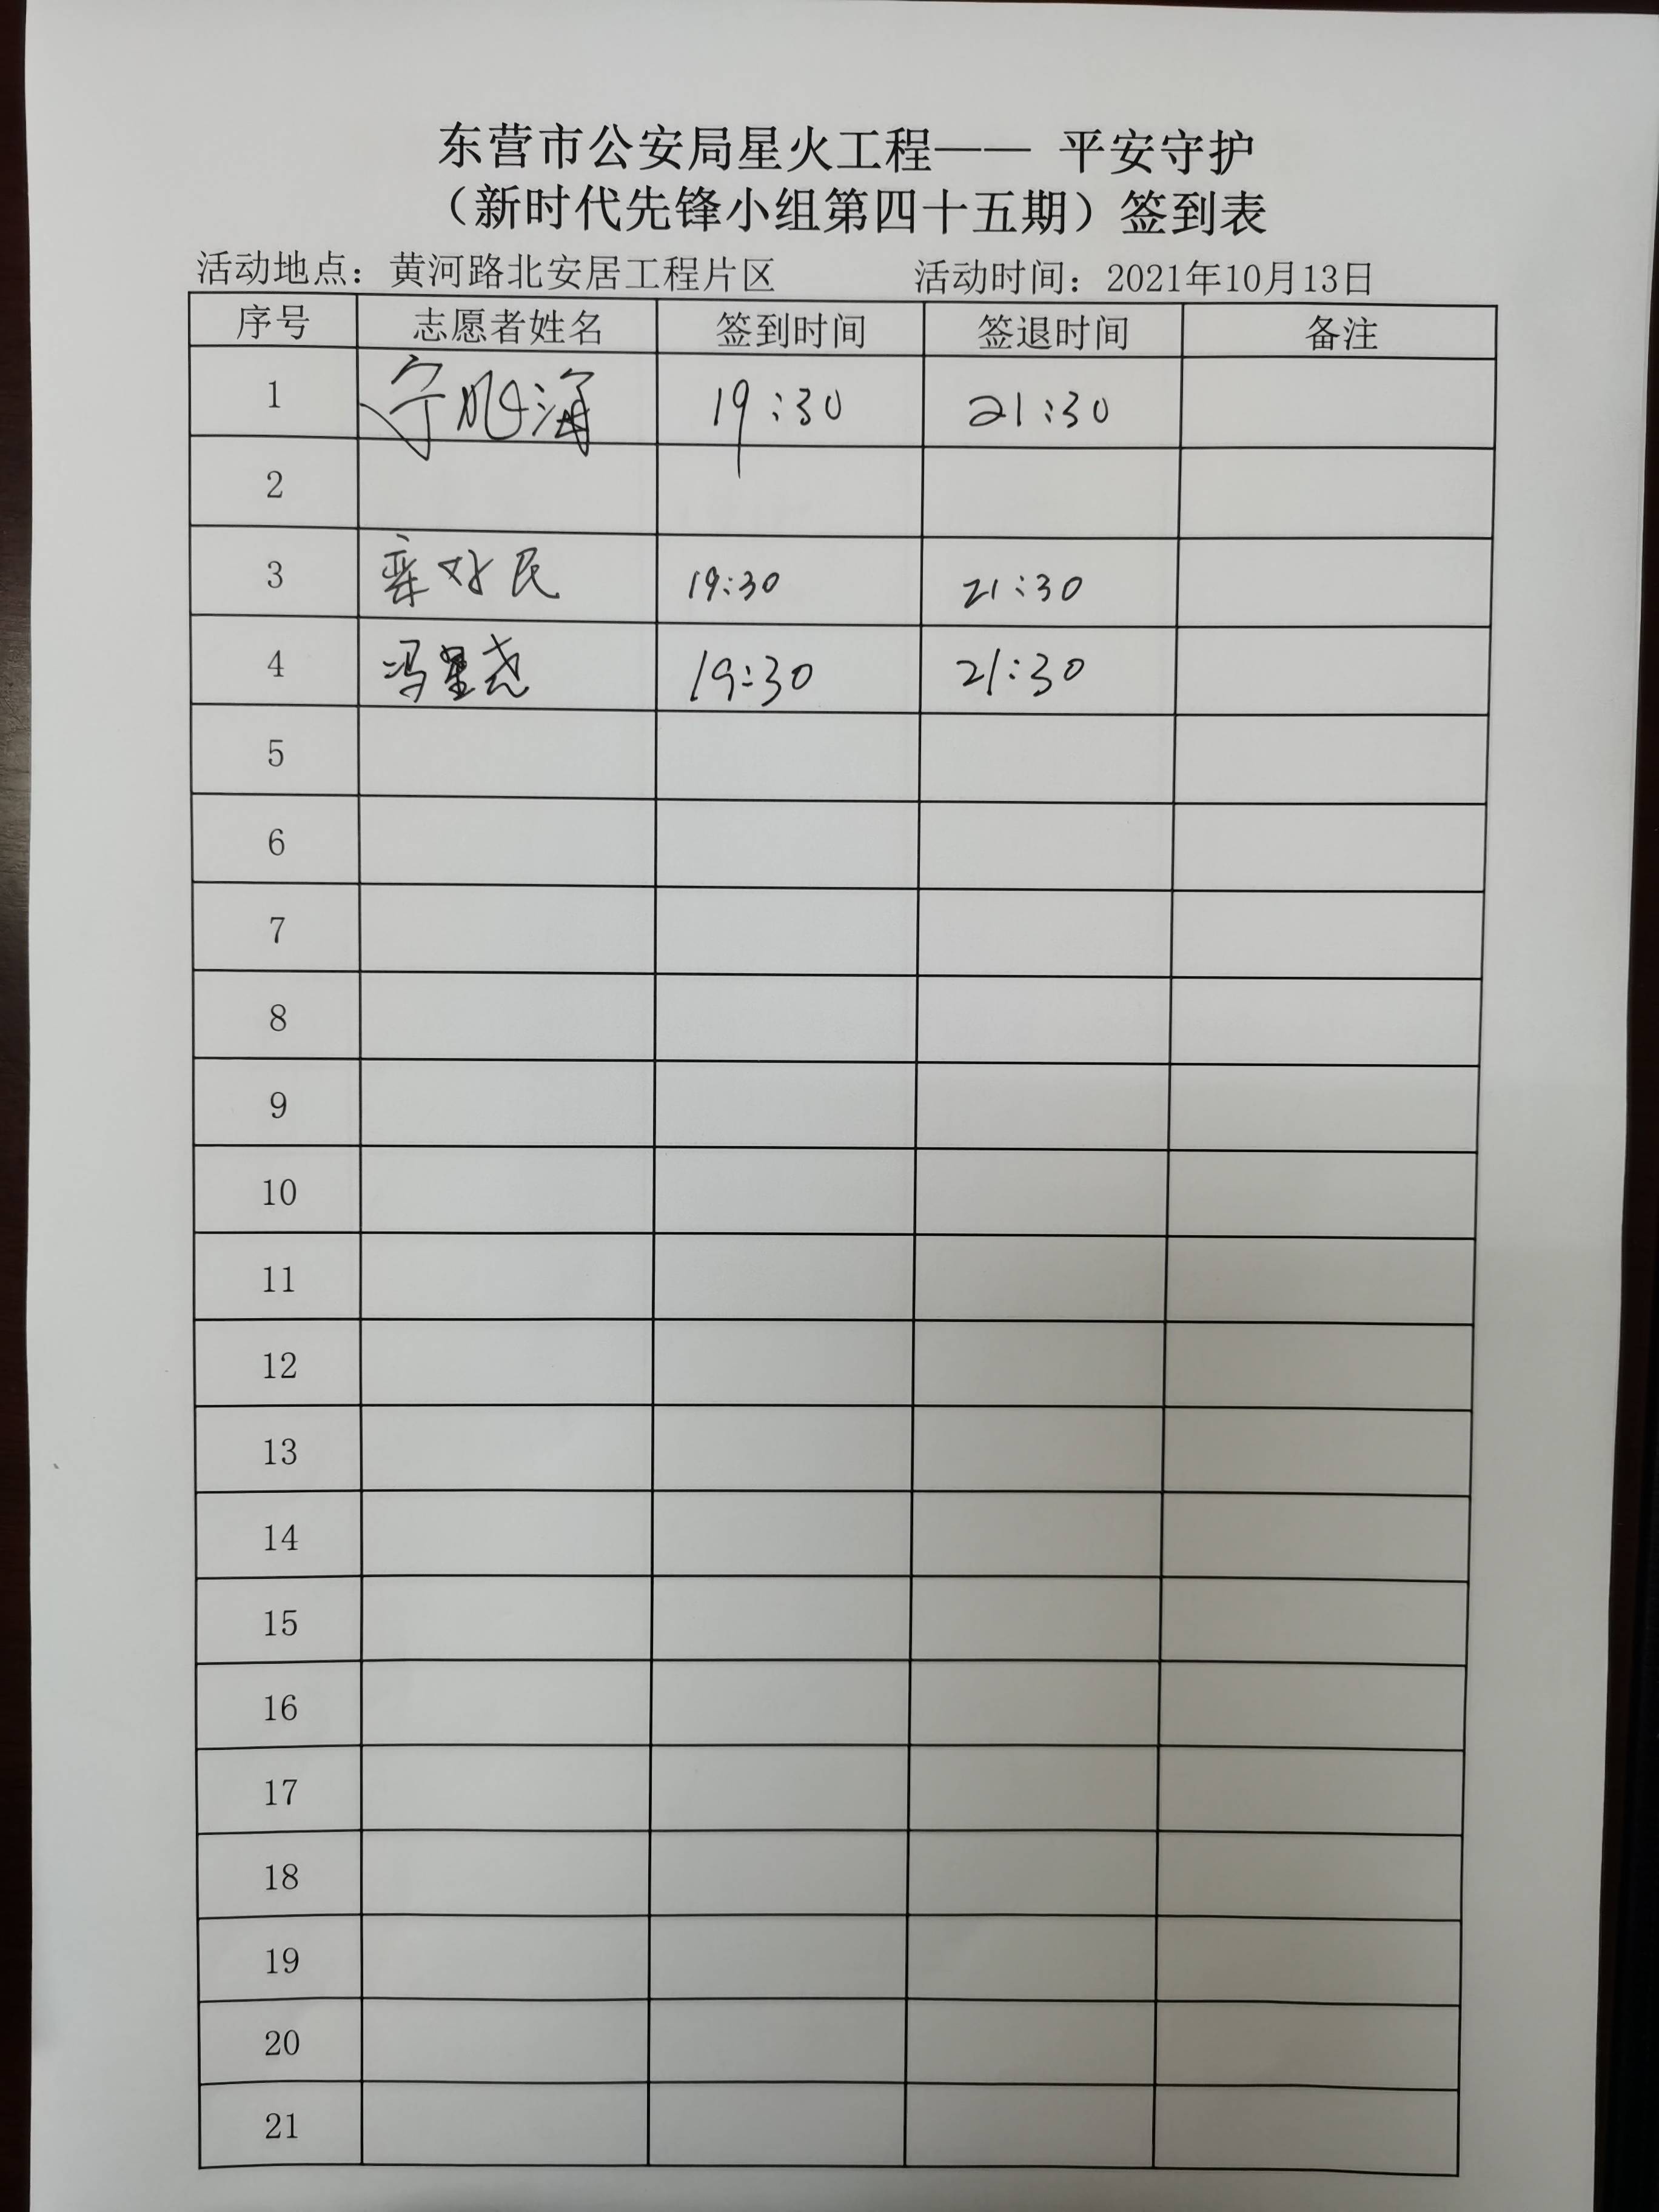 东营市公安局星火工程—— 平安守护
（新时代先锋小组第四十五期）签到表
活动地点：黄河路北安居工程片区 活动时间：2021年10月13日
序号 志愿者姓名 签到时间 签退时间 备注
1 19:30 21:30
2
3 民 19:30 21:30
4 冯星尧 19:30 21:30
5
6
7
8
9
10
11
12
13
14
15
16
17
18
19
20
21